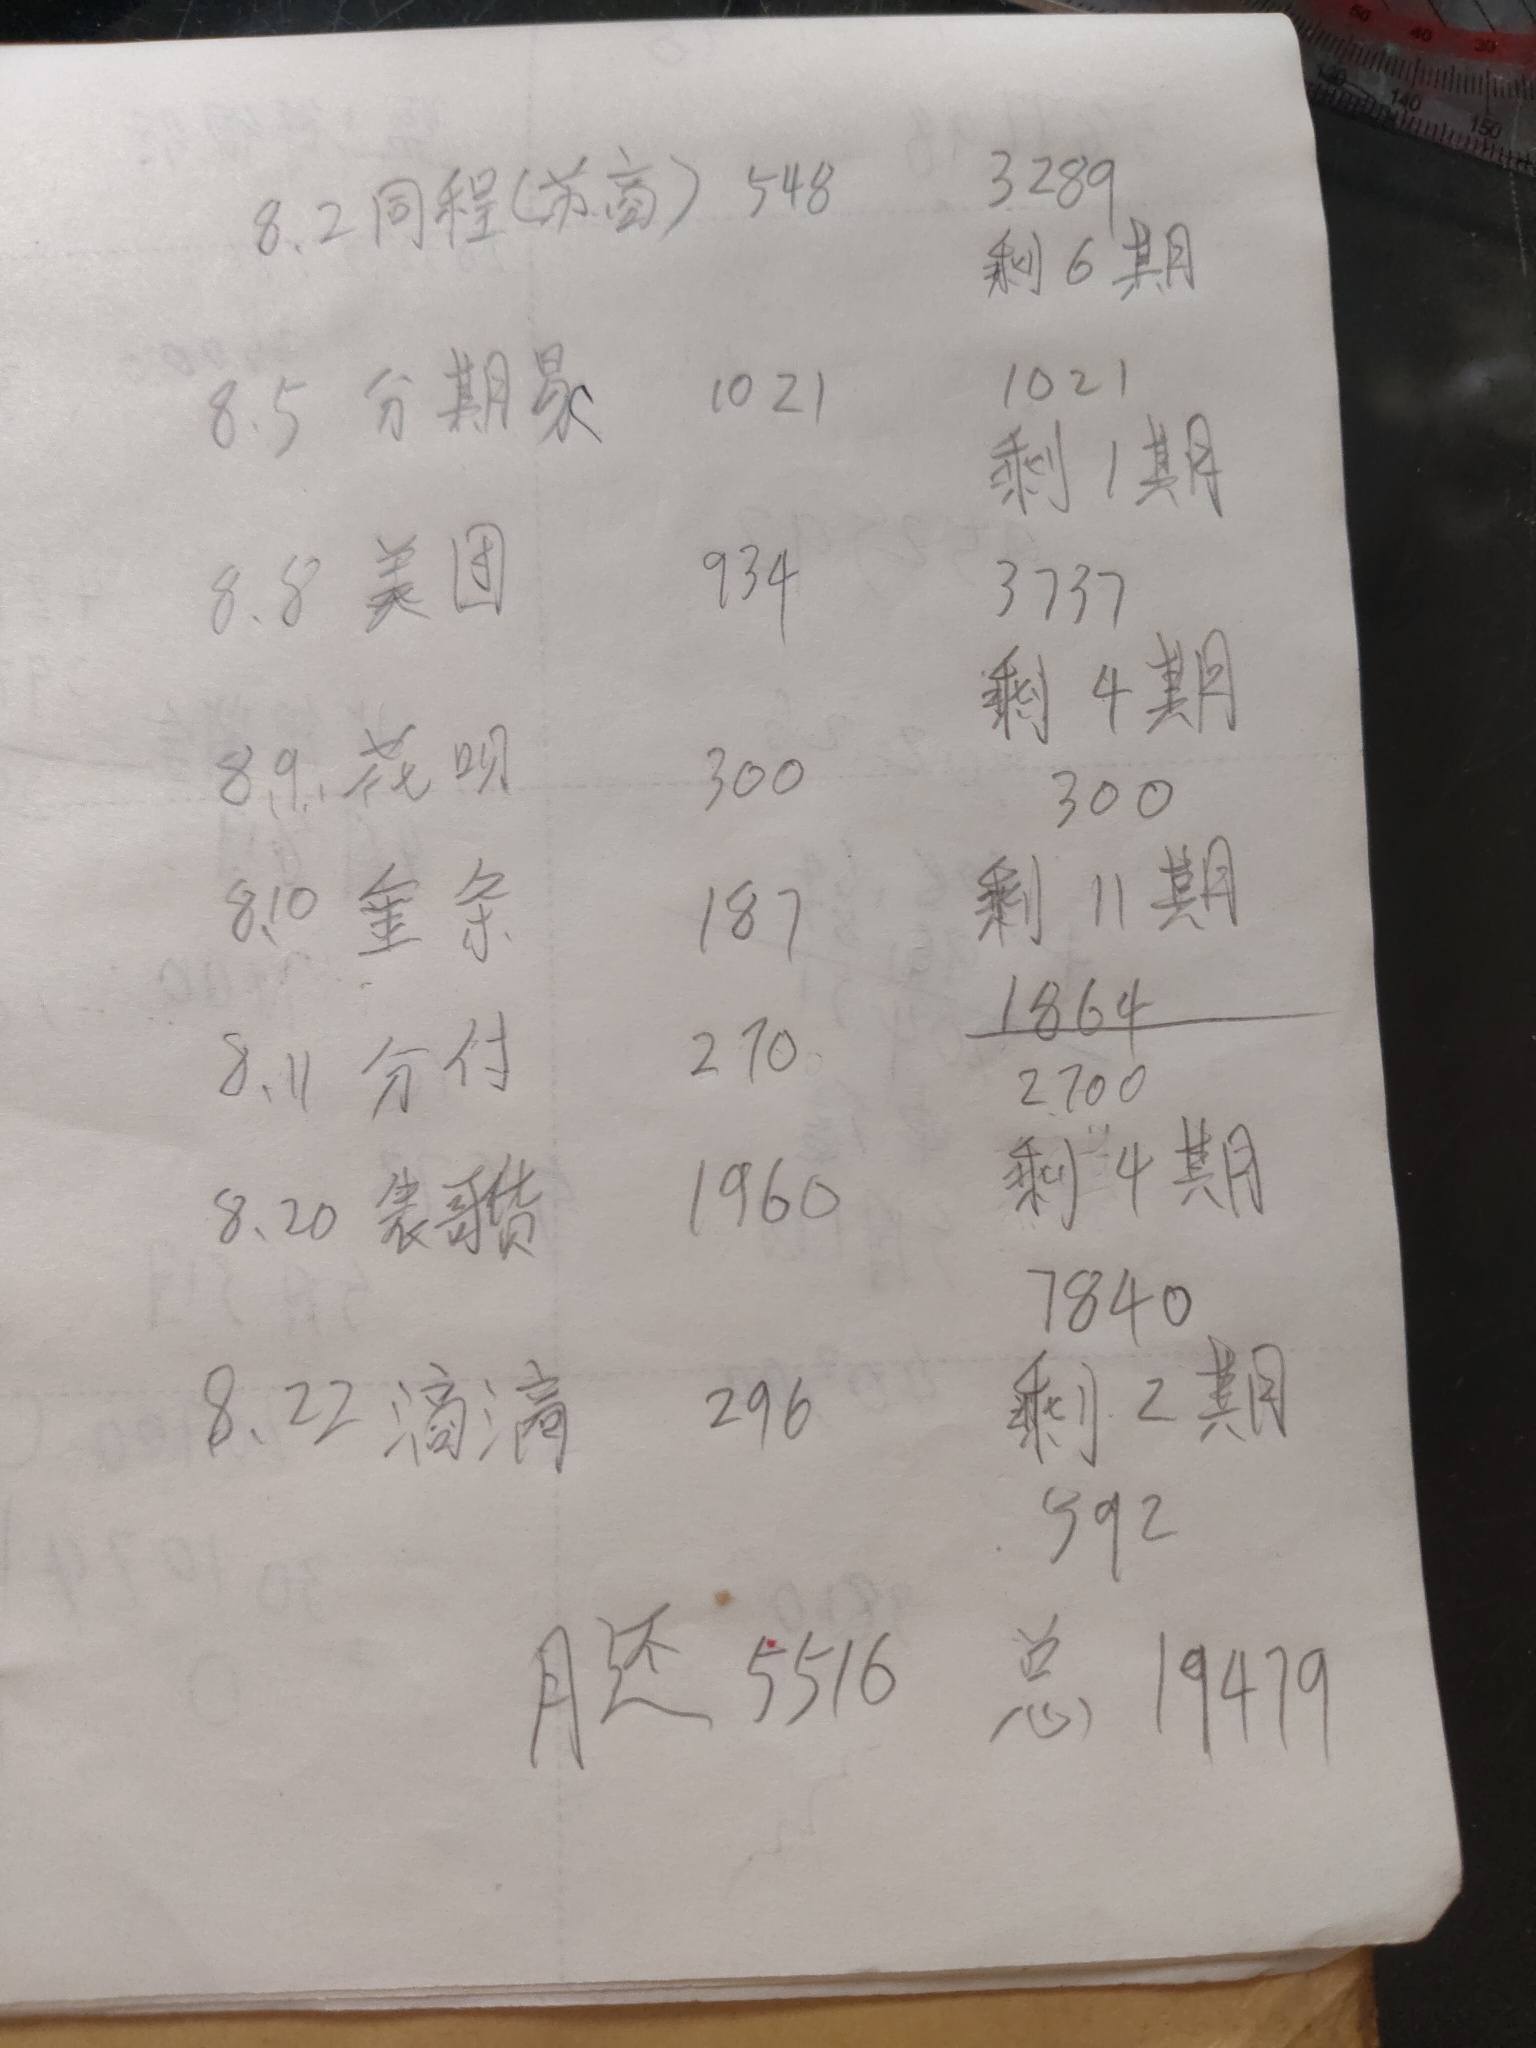 8.2 同程(苏商) 548 3289
剩6期
8.5 分期易 1021 1021
剩1期
8.8 美团 934 3737
剩4期
8.9. 花呗 300 300
8.10 金条 187 剩11期
1864
8.11 分付 270 2700
剩4期
8.20 装哥贷 1960
7840
8.22 滴滴 296 剩2期
592
月还 5516 总 19479